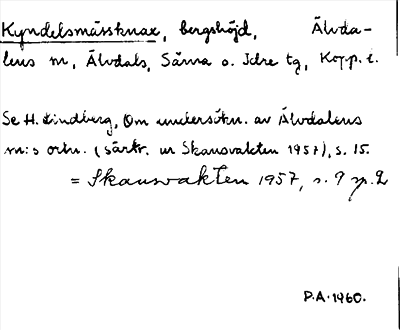 Kyndelsmässknax, bergshöjd, Älvda-
lens m, Älvdals, Särna o. Idre tg, Kopp. l.
Se H. Lindberg, Om undersökn. av Älvdalens
m:s ortn. (särtr. ur Skansvakten 1957), s. 15.
= Skansvakten 1957, s. 9 sp. 2
P.A. 1960.